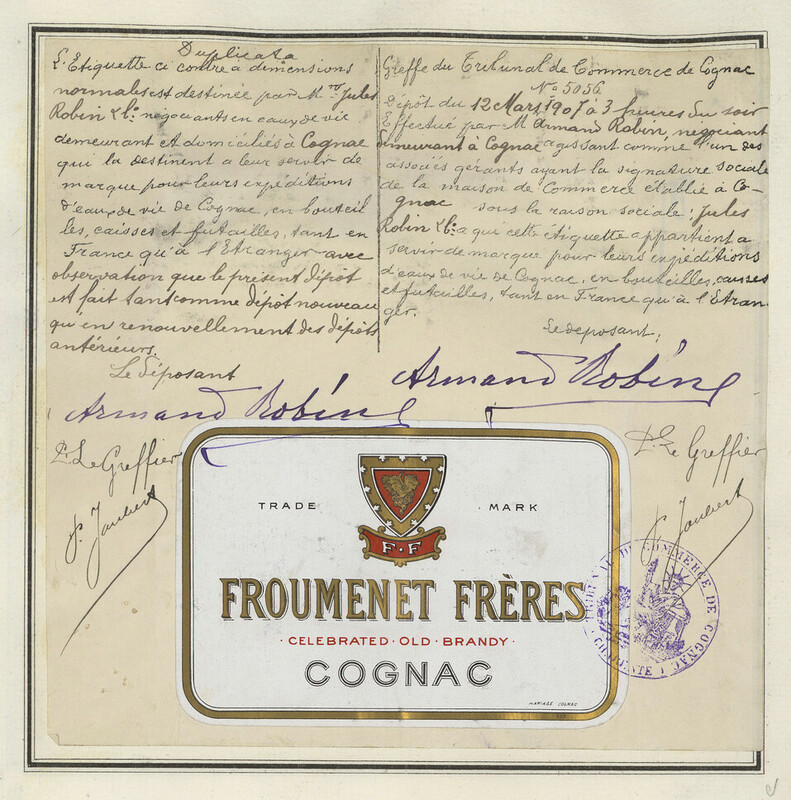 Duplicata
L'Etiquette ci contre a dimensions
normales est destinée par M.rs Jules
Robin & Cie négociants en eaux de vie
demeurant et domiciliés à Cognac
qui la destinent a leur servir de
marque pour leurs expéditions
d'eaux de vie de Cognac, en bouteil
les, caisses et futailles, tant en
France qu'à l'Etranger avec
observation que le présent dépôt
est fait tant comme dépôt nouveau
qu'en renouvellement des dépôts
antérieurs.
Le déposant
Armand Robin
P. Le Greffier
J. Joubert
Greffe du Tribunal de Commerce de Cognac
No 5056
Dépôt du 12 Mars 1907 à 3 heures du soir
Effectué par M. Armand Robin, négociant
demeurant à Cognac agissant comme l'un des
associés gérants ayant la signature sociale
de la maison de Commerce établie à Co-
gnac sous la raison sociale; Jules
Robin & Cie a qui cette étiquette appartient a
servir de marque pour leurs expéditions
d'eaux de vie de Cognac, en bouteilles, caisses
et futailles, tant en France qu'à l'Etran-
ger.
Le déposant,
Armand Robin
P. Le Greffier
J. Joubert
TRADE MARK
F·F
FROUMENET FRÈRES
·CELEBRATED·OLD·BRANDY·
COGNAC
MARIAGE COGNAC
TRIBUNAL DE COMMERCE DE COGNAC
CHARENTE